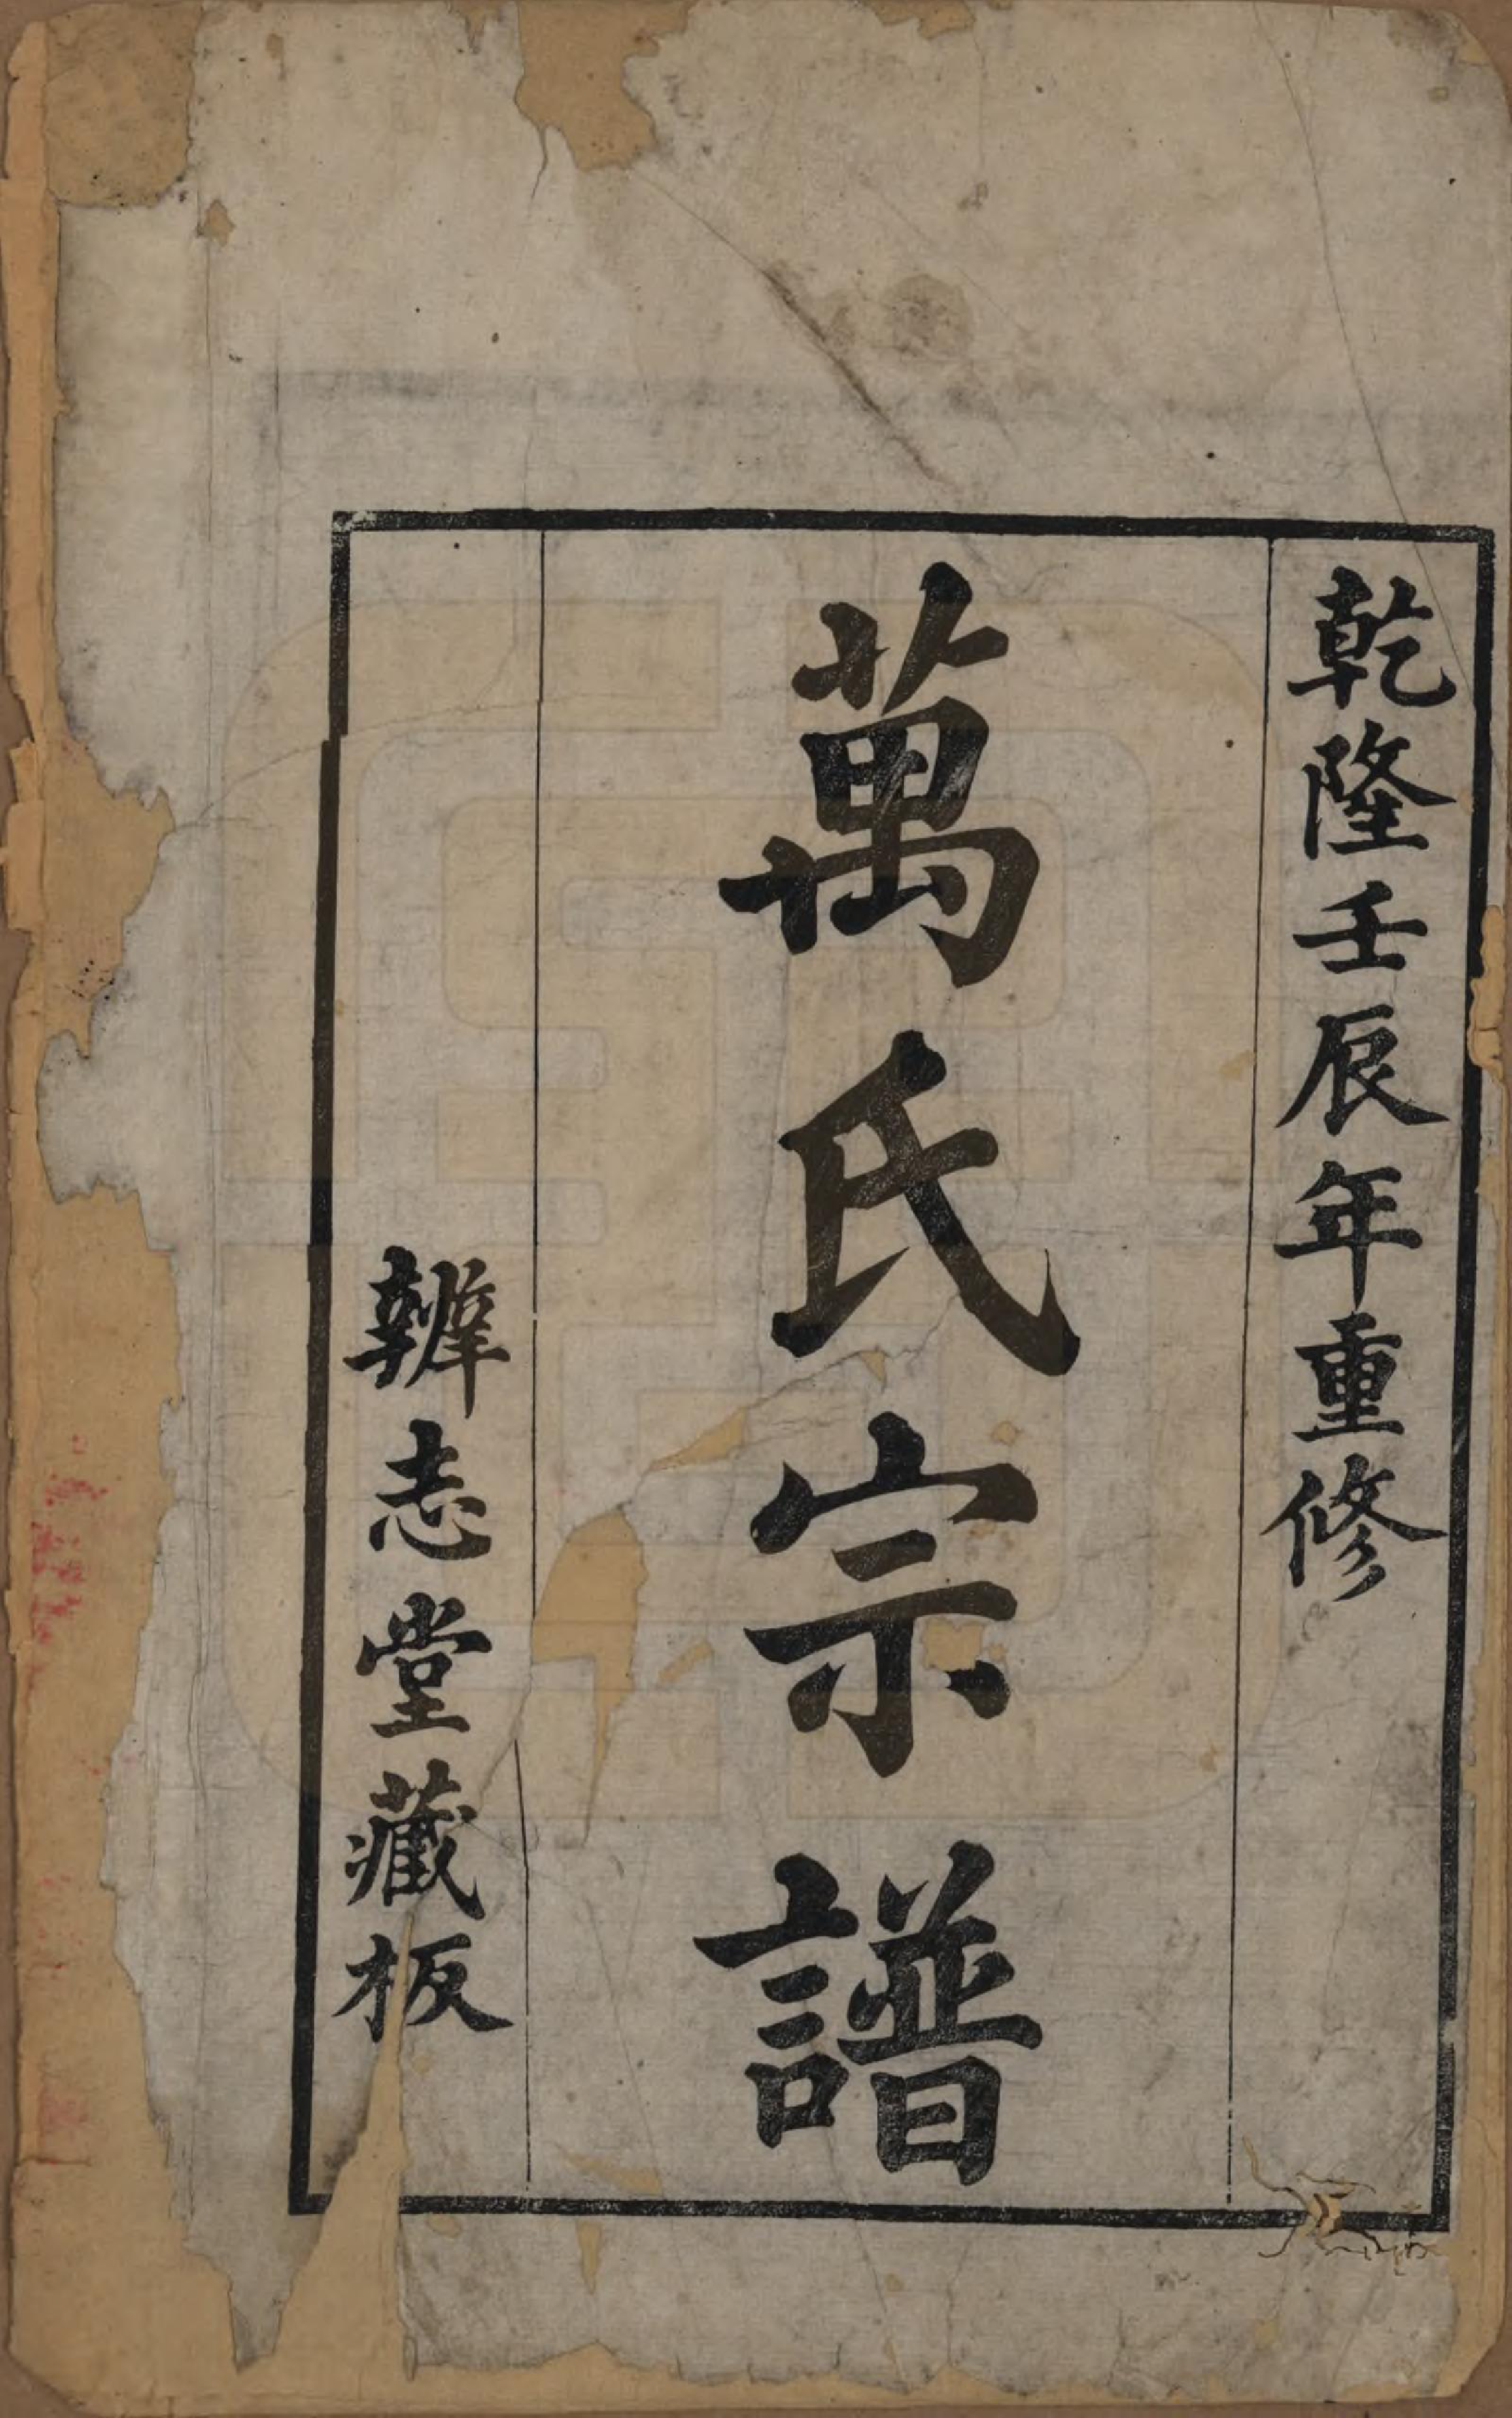 乾隆壬辰年重修
萬氏宗譜
辨志堂藏板